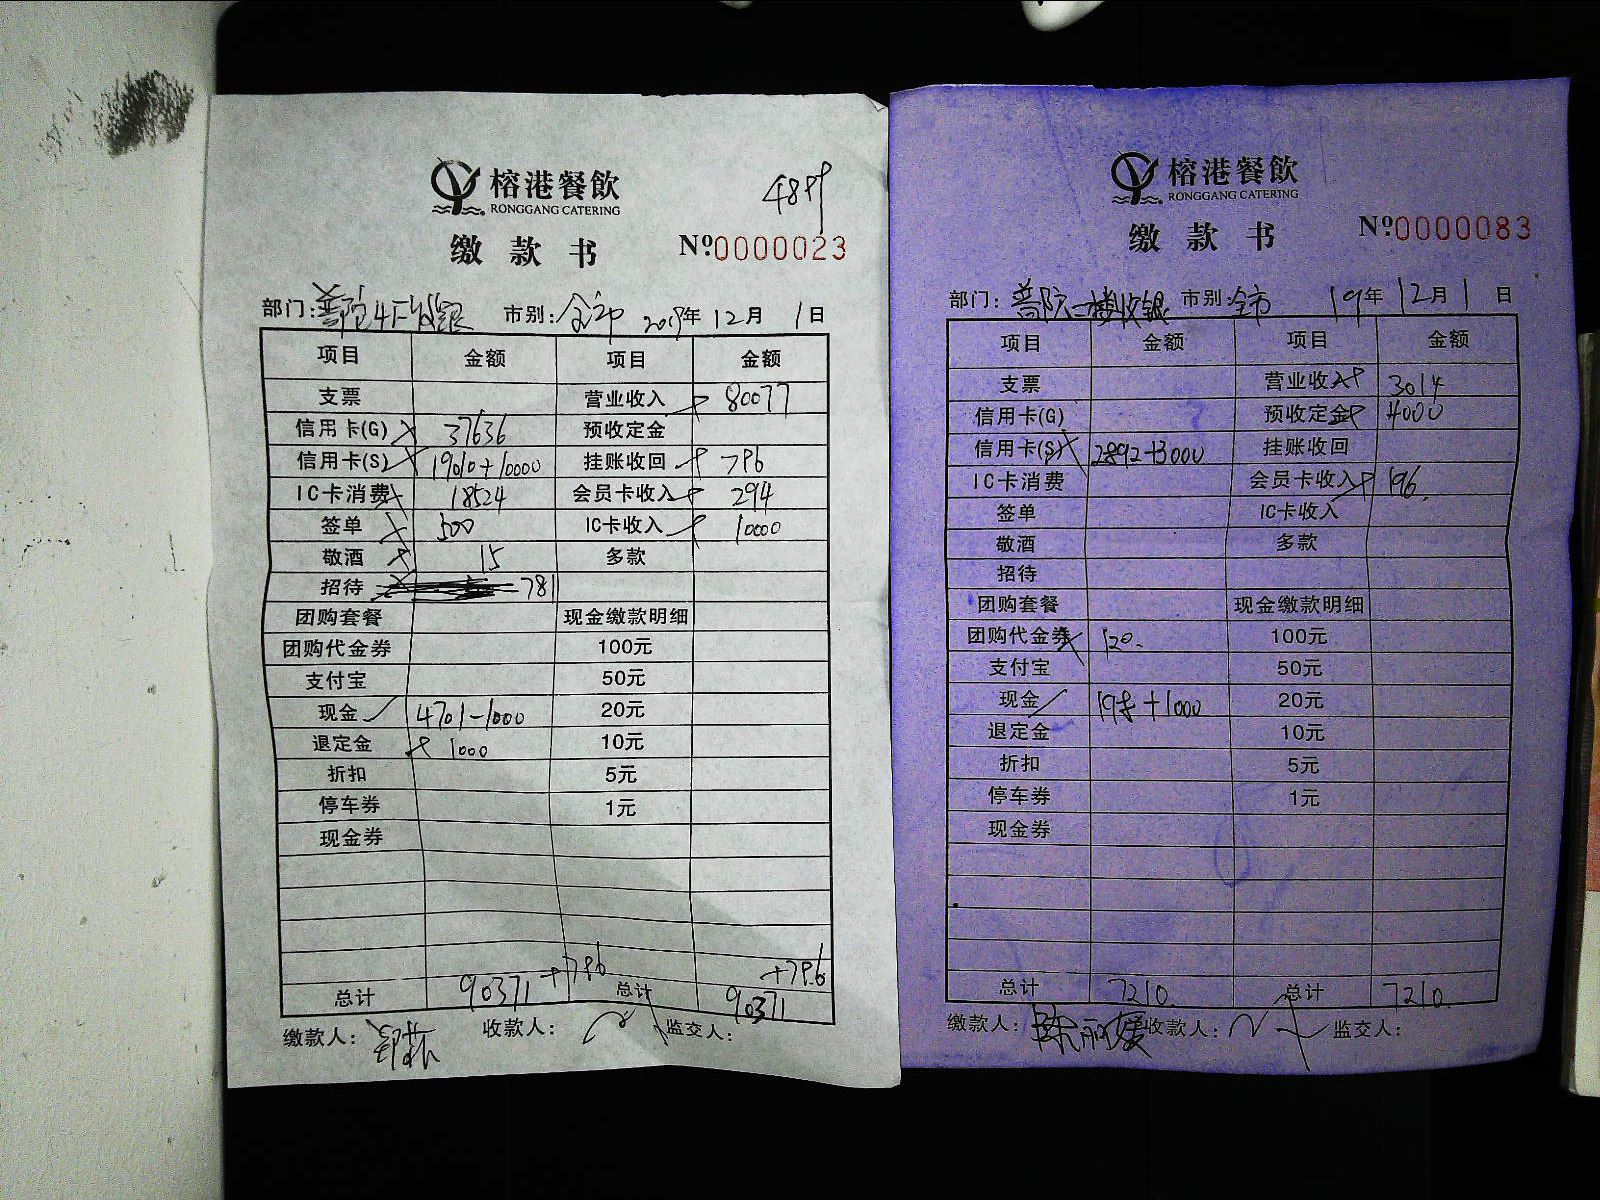 榕港餐飲
RONGGANG CATERING
4899
缴款书
№0000023
部门：普陀4F收银 市别：全市 2019年12月1日
项目 金额 项目 金额
支票 营业收入 80077
信用卡(G) 37636 预收定金
信用卡(S) 19010+10000 挂账收回 796
IC卡消费 18524 会员卡收入 294
签单 500 IC卡收入 10000
敬酒 15 多款
招待 781
团购套餐 现金缴款明细
团购代金券 100元
支付宝 50元
现金 4701-1000 20元
退定金 1000 10元
折扣 5元
停车券 1元
现金券
+796 +796
总计 90371 总计 90371
缴款人： 收款人： 监交人：
榕港餐飲
RONGGANG CATERING
缴款书
№0000083
部门：普陀二楼收银 市别：全市 19年12月1日
项目 金额 项目 金额
支票 营业收入 3014
信用卡(G) 预收定金 4000
信用卡(S) 2892+3000 挂账收回
IC卡消费 会员卡收入 196.
签单 IC卡收入
敬酒 多款
招待
团购套餐 现金缴款明细
团购代金券 120. 100元
支付宝 50元
现金 198+1000 20元
退定金 10元
折扣 5元
停车券 1元
现金券
总计 7210. 总计 7210.
缴款人：陈丽媛 收款人： 监交人：